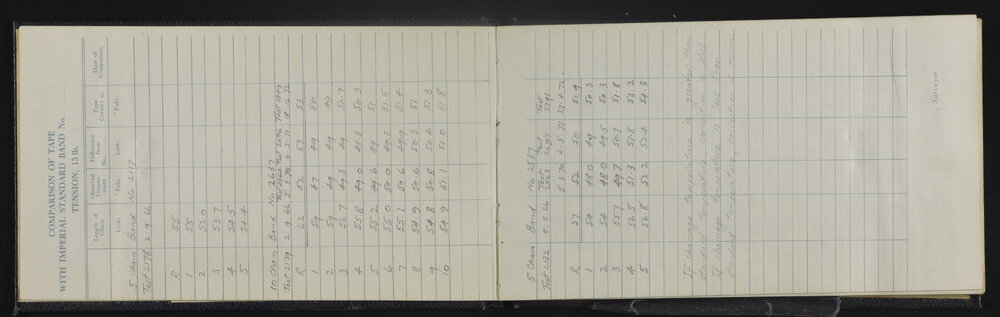 COMPARISON OF TAPE
WITH IMPERIAL STANDARD BAND No.
TENSION, 15 lb.
Length of Chain Observed Temperature Difference from No. Tape Correct at Date of Comparison
Links ° Fahr. Links ° Fahr.
5 Chain Band No 2117
Test 2178 2. 9. 66
R 55
1 55
2 53.0
3 53.7
4 54.5
5 54.4
10 Chain Band No 2637
Test 2179 2.9.66 5.3.70 6.5.71
R 62 52 53 53
1 59 47 49 50
2 59 49 49 49
3 56.7 49.3 49 50.7
4 55.8 49.0 48.8 50.3
5 55.2 49.6 49 51
6 55.0 50.0 49.3 51.5
7 55.1 50.6 49.9 51.4
8 54.9 50.6 50.3 51
9 54.8 50.8 50.4 51.3
10 54.9 51.1 51.0 51.8
5 Chain Band No 2537
Test 2132 Test 2563 Test 2697 Test
8.66 5.3.70 6.5.71 27.4.72.
R 57 52 50 51.9
1 54 48.0 49 50.3
2 54 48.0 49.5 50.3
3 55.7 49.7 50.7 51.8
4 56.5 51.3 51.8 53.2
5 56.8 52.2 52.4 54.3
If chainage temperature is greater than
standard temperature correction is plus
If chainage temperature is less than
standard temperature correction is minus
, Surveyor.